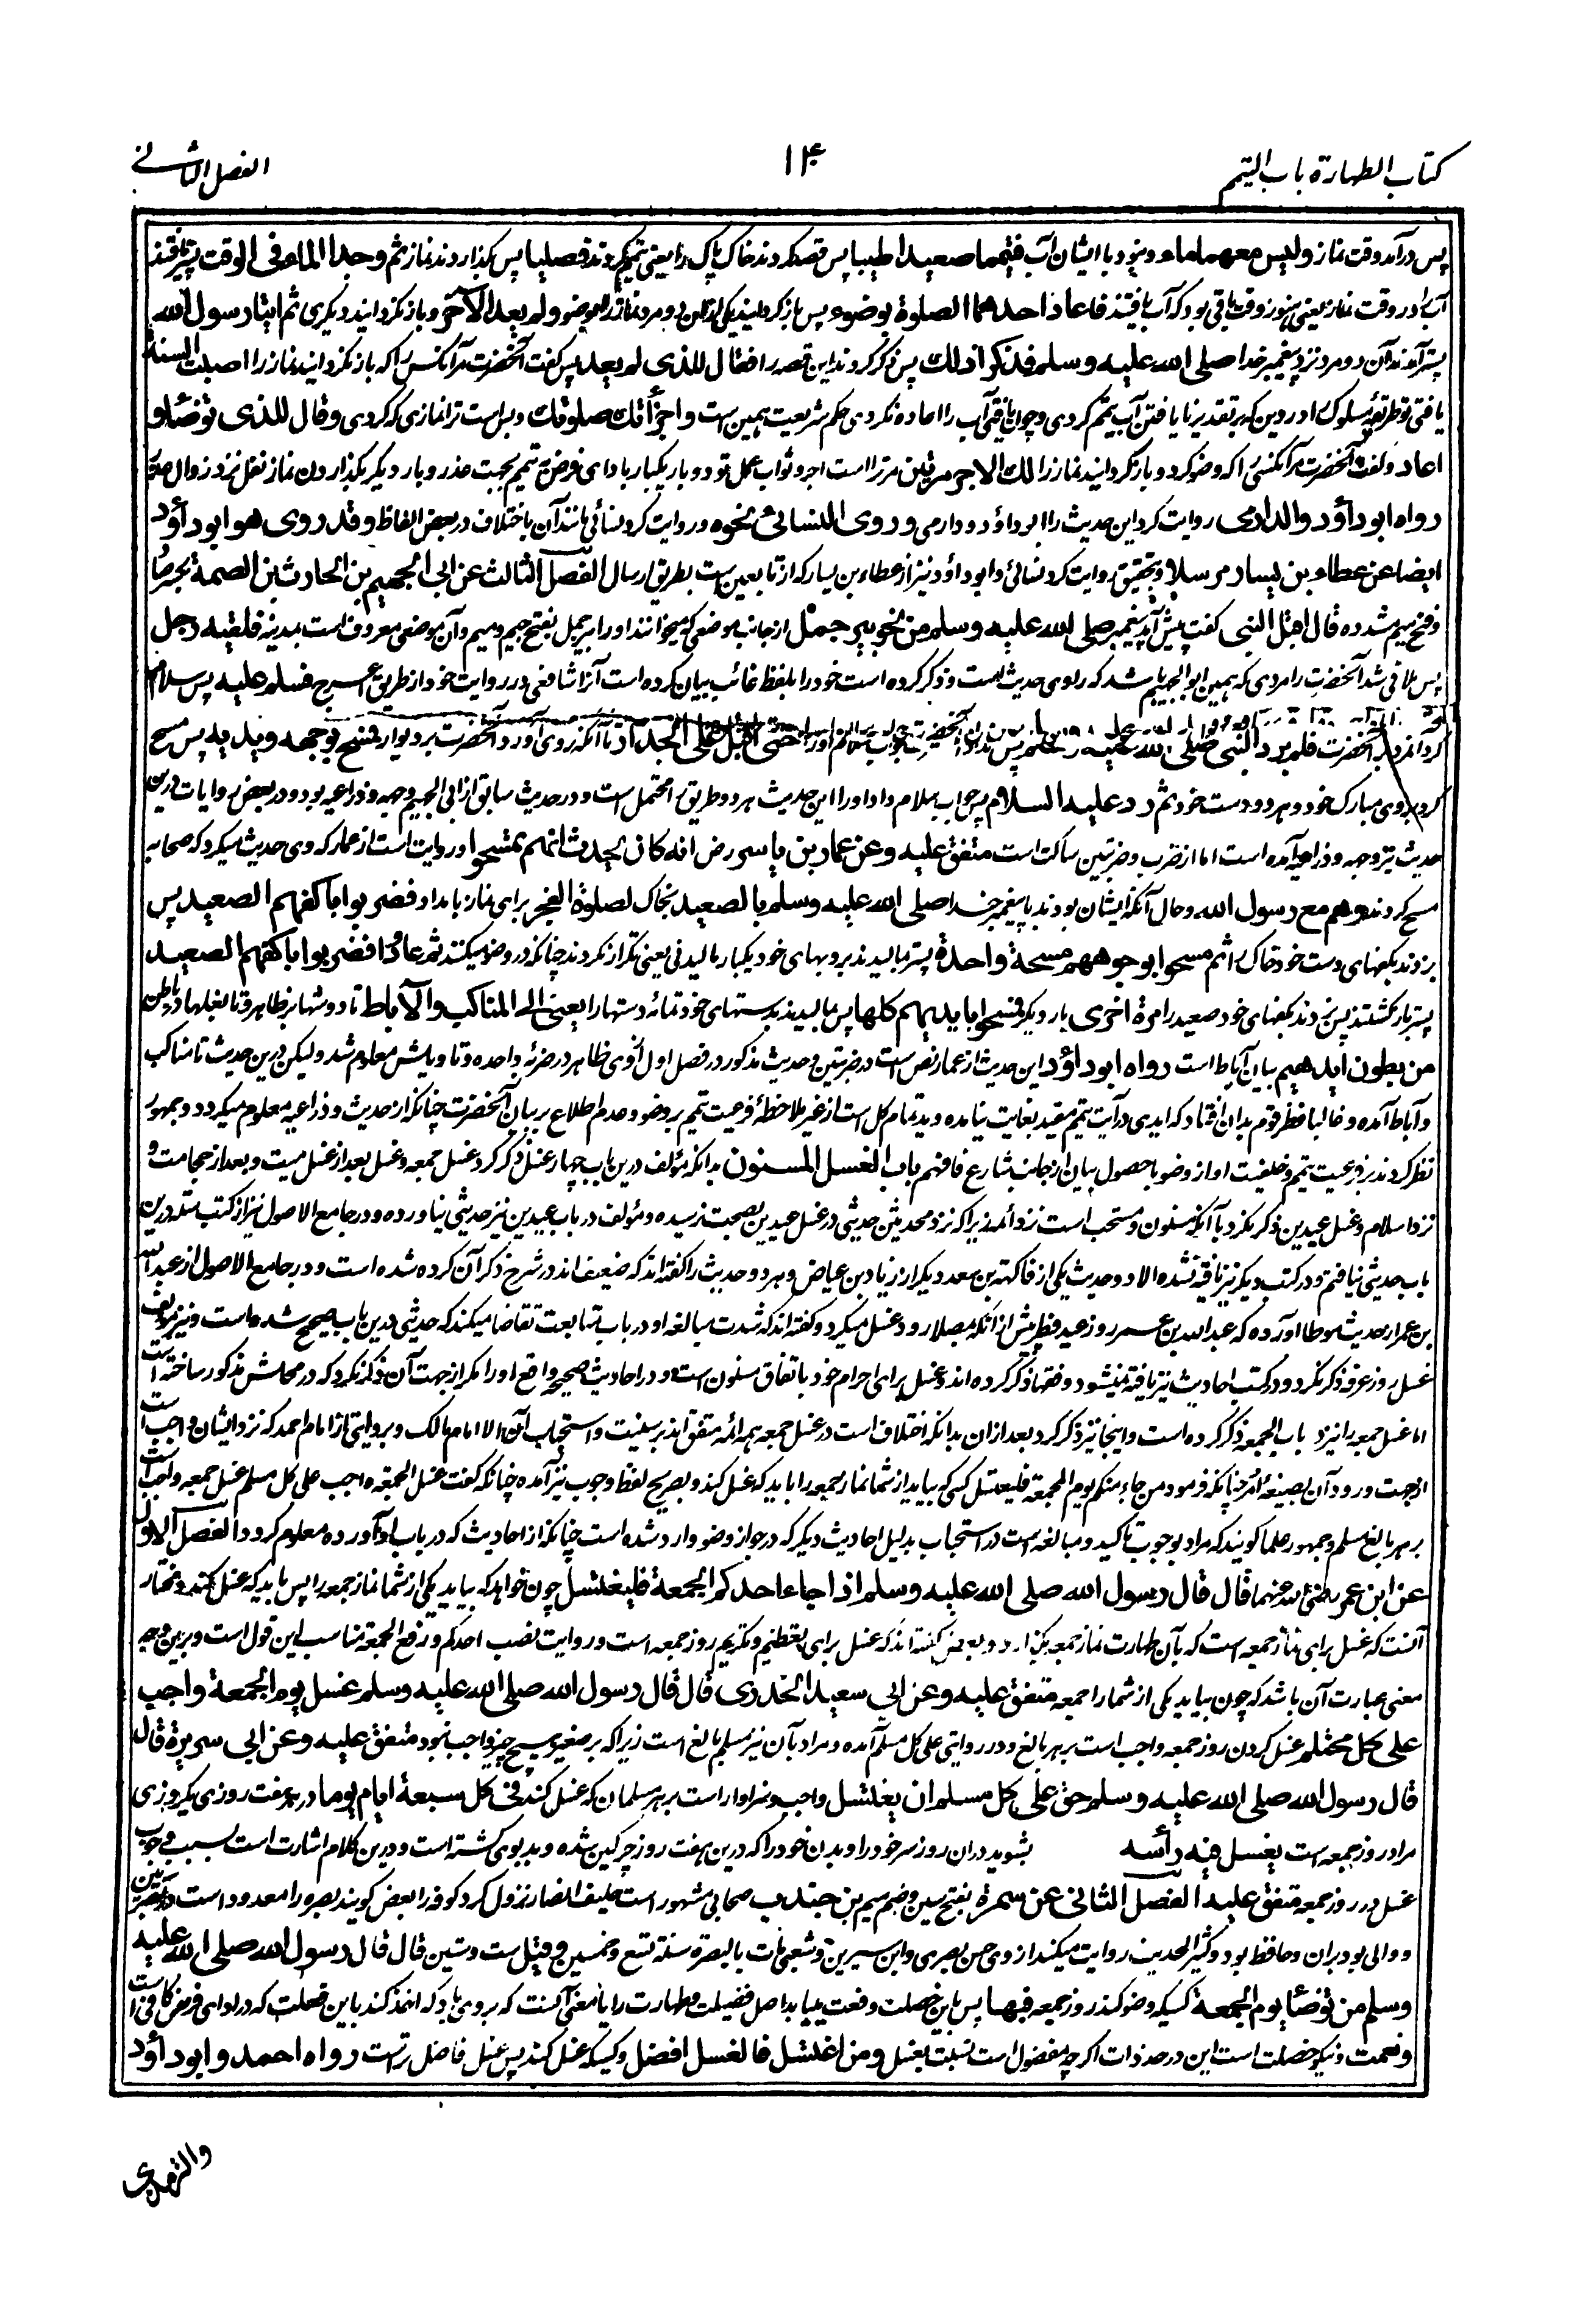 كتاب الطهارة باب التيمم
الفصل الثاني
پس در آمد وقت نماز وليس معهما ماء و نبود با ایشان آب فتيمما صعيدا طيبا پس قصد کردند خاک پاک را یعنی تیمم کردند فصليا پس گذاردند نماز ثم وجدا الماء فی الوقت پستر یافتند
آب را در وقت نماز یعنی هنوز وقت باقی بود که آب یافتند فاعاد احدهما الصلوة بوضوء پس باز گردانید یکی ازان دو مرد نماز را بوضو ولم يعد الآخر و باز نگردانید دیگری ثم اتيا رسول الله
پستر آمدند آن دو مرد نزد پیغمبر خدا صلى الله عليه وسلم فذكرا ذلك پس ذکر کردند این قصه را فقال للذى لم يعد پس گفت آنحضرت مر آنکس را که باز نگردانید نماز را اصبت السنة
یافتی تو طریقهٔ مسلوک را در دین که بر تقدیر نایافتن آب تیمم کردی و چون یافتی آب را اعاده نکردی حکم شریعت همین است واجزأتك صلوتك و بس است ترا نمازی که کردی وقال للذى توضأ و
اعاد و گفت آنحضرت مر آنکس را که وضو کرد و باز گردانید نماز را لك الاجر مرتين مر ترا است اجر و ثواب عمل تو دو بار یکبار بادای فرض به تیمم بجهت عذر و بار دیگر بگذاردن نماز نفل نزد زوال عذر
رواه ابو داؤد والدارمی روایت کرد این حدیث را ابو داؤد و دارمی و روى النسائى نحوه و روایت کرد نسائی مانند آن با ختلاف در بعض الفاظ وقد روى هو ابو داؤد
ايضا عن عطاء بن يسار مرسلا و بتحقیق روایت کرد نسائی و ابو داؤد نیز از عطاء بن یسار که از تابعین است بطریق ارسال الفصل الثالث عن ابى الجهيم بن الحارث بن الصمة بکسر صاد
و فتح میم مشدده قال اقبل النبى گفت پیش آمد پیغمبر صلى الله عليه وسلم من نحو بير جمل از جانب موضعی که میخوانند او را بیر جمل بفتح جیم و میم و آن موضعی معروف است بمدینه فلقيه رجل
پس ملاقی شد آنحضرت را مردی که همین ابو الجهیم باشد که راوی حدیث است و ذکر کرده است خود را بلفظ غائب بیان کرده است آنرا شافعی در روایت خود از طریق اعرج فسلم عليه پس سلام
کرد آنمرد بر آنحضرت فلم يرد النبى صلى الله عليه وسلم پس نداد آنحضرت جواب سلام او را حتى اقبل على الجدار تا آنکه روی آورد آنحضرت بر دیوار فمسح بوجهه ويديه پس مسح
کرد بروی مبارک خود و هر دو دست خود ثم رد عليه السلام پس جواب سلام داد او را این حدیث هر دو طریق را محتمل است و در حدیث سابق از ابی الجهیم وجهه و ذراعیه بود و در بعض روایات درین
حدیث نیز وجهه و ذراعیه آمده است اما از ضرب و ضربتین ساکت است متفق عليه وعن عمار بن ياسر رض انه كان يحدث انهم تمسحوا و روایت است از عمار که وی حدیث میکرد که صحابه
مسح کردند وهم مع رسول الله و حال آنکه ایشان بودند با پیغمبر خدا صلى الله عليه وسلم بالصعيد بخاک لصلوة الفجر برای نماز بامداد فضربوا باكفهم الصعيد پس
بزدند بکفهای دست خود خاک را ثم مسحوا بوجوههم مسحة واحدة پستر مالیدند برویهای خود یکبار مالیدنی یعنی تکرار نکردند چنانکه در وضو میکنند ثم عادوا فضربوا باكفهم الصعيد
پستر باز گشتند پس زدند بکفهای خود صعید را مرة اخرى بار دیگر فمسحوا بايديهم كلها پس مالیدند بدستهای خود تمامهٔ دستها را یعنی الى المناكب والآباط تا دوشها بر ظاهر و تا بغلها در باطن
من بطون ايديهم بیان آباط است رواه ابو داؤد این حدیث از عمار نص است در ضربتین و حدیث مذکور در فصل اول از وی ظاهر در ضربهٔ واحده و تاویلش معلوم شد ولیکن درین حدیث تا مناکب
و آباط آمده و غالبا نظر قوم بدان افتاد که ایدی در آیت تیمم مقید بغایت نیامده و ید تمام کل است از غیر ملاحظهٔ فرعیت تیمم بر وضو و عدم اطلاع بر بیان آنحضرت چنانکه از حدیث و ذراعیه معلوم میگردد و جمهور
نظر کردند بر فرعیت تیمم و خلیفیت او از وضو با حصول بیان از جانب شارع فافهم باب الغسل المسنون بدانکه مؤلف درین باب چهار غسل ذکر کرد غسل جمعه و غسل بعد از غسل میت و بعد از حجامت و
نزد اسلام و غسل عیدین ذکر نکرد با آنکه مسنون و مستحب است نزد ائمه زیرا که نزد محدثین حدیثی در غسل عیدین بصحت نرسیده و مؤلف در باب عیدین نیز حدیثی نیاورده و در جامع الاصول نیز از کتب سته درین
باب حدیثی نیافتم و در کتب دیگر نیز یافته نشده الا دو حدیث یکی از فاکهه بن سعد دیگر از زیاد بن عیاض و هر دو حدیث را گفته اند که ضعیف اند در شرح ذکر آن کرده شده است و در جامع الاصول از عبد الله
بن عمر از حدیث موطا آورده که عبد الله بن عمر روز عید فطر پیش از آنکه بمصلا رود غسل میکرد و گفته اند که شدت مبالغه او در باب متابعت تقاضا میکند که حدیثی درین باب صحیح شده است و نیز مؤلف
غسل روز عرفه ذکر نکرد و در کتب احادیث نیز یافته نمیشود و فقها ذکر کرده اند و غسل برای احرام خود باتفاق مسنون است و در احادیث صحیحه واقع او را مگر از جهت آن ذکر نکرد که در محلش مذکور ساخته است
اما غسل جمعه را نیز در باب الجمعه ذکر کرده است و اینجا نیز ذکر کرد بعد ازان بدانکه اختلاف است در غسل جمعه همه ائمه متفق اند بر سنیت و استحباب آن الا امام مالک و بروایتی از امام احمد که نزد ایشان واجب است
از جهت ورود آن بصیغهٔ امر چنانکه فرمود من جاء منکم یوم الجمعة فلیغتسل کسی که بیاید از شما نماز جمعه را باید که غسل کند و بصریح لفظ وجوب نیز آمده چنانکه گفت غسل الجمعة واجب علی کل مسلم غسل جمعه واجب است
بر هر بالغ مسلم و جمهور علما گویند که مراد بوجوب تاکید و مبالغه است در استحباب بدلیل احادیث دیگر که در جواز وضو وارد شده است چنانکه از احادیث که در باب آورده معلوم گردد الفصل الاول
عن ابن عمر رضی الله عنهما قال قال رسول الله صلى الله عليه وسلم اذا جاء احدكم الجمعة فليغتسل چون خواهد که بیاید یکی از شما نماز جمعه را پس باید که غسل کند و مختار
آنست که غسل برای نماز جمعه است که بآن طهارت نماز جمعه بگذارد و بعض گفته اند که غسل برای تعظیم و تکریم روز جمعه است و روایت نصب احدکم و رفع الجمعة مناسب این قول است و برین وجه
معنی عبارت آن باشد که چون بیاید یکی از شما را جمعه متفق عليه وعن ابى سعيد الخدرى قال قال رسول الله صلى الله عليه وسلم غسل يوم الجمعة واجب
على كل محتلم غسل کردن روز جمعه واجب است بر هر بالغ و در روایتی علی کل مسلم آمده و مراد بآن نیز مسلم بالغ است زیرا که بر صغیر هیچ چیز واجب نبود متفق عليه وعن ابى هريرة قال
قال رسول الله صلى الله عليه وسلم حق على كل مسلم ان يغتسل واجب و سزاوار است بر هر مسلمان که غسل کند فى كل سبعة ايام يوما در هر هفت روزی یکروزی
مراد روز جمعه است يغسل فيه رأسه بشوید دران روز سر خود را و بدن خود را که درین هفت روز چرکین شده و بدبوی گشته است و درین کلام اشارت است بسبب وجوب
غسل در روز جمعه متفق عليه الفصل الثانى عن سمرة بفتح سین و ضم میم بن جندب صحابی مشهور است حلیف انصار نزول کرد کوفه را بعض گویند بصره را معدود است در بصریین
و والی بود بران و حافظ بود و کثیر الحدیث روایت میکند از وی حسن بصری و ابن سیرین و شعبی مات بالبصرة سنة تسع وخمسين و قیل ست و ستین قال قال رسول الله صلى الله عليه
وسلم من توضأ يوم الجمعة کسیکه وضو کند روز جمعه فبها پس باین خصلت و فعلت بیاید اصل فضیلت و طهارت را یا معنی آنست که بروی باد که اخذ کند باین فعلت که در ادای فرض کافی است
ونعمت و نیکو خصلت است این در حد ذات اگرچه مفضول است نسبت بغسل ومن اغتسل فالغسل افضل و کسیکه غسل کند پس غسل فاضل تر است رواه احمد وابو داؤد
والترمذی